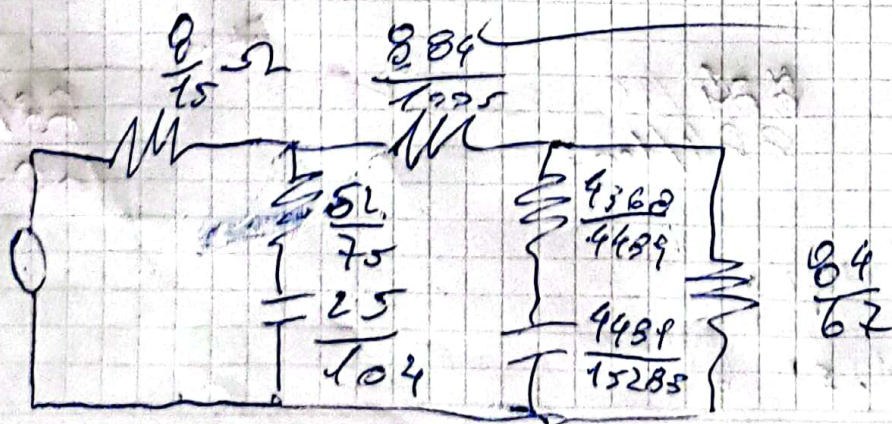 8/15 Ω
884/1005
52/75
25/104
4368/4489
4489/15288
84/67